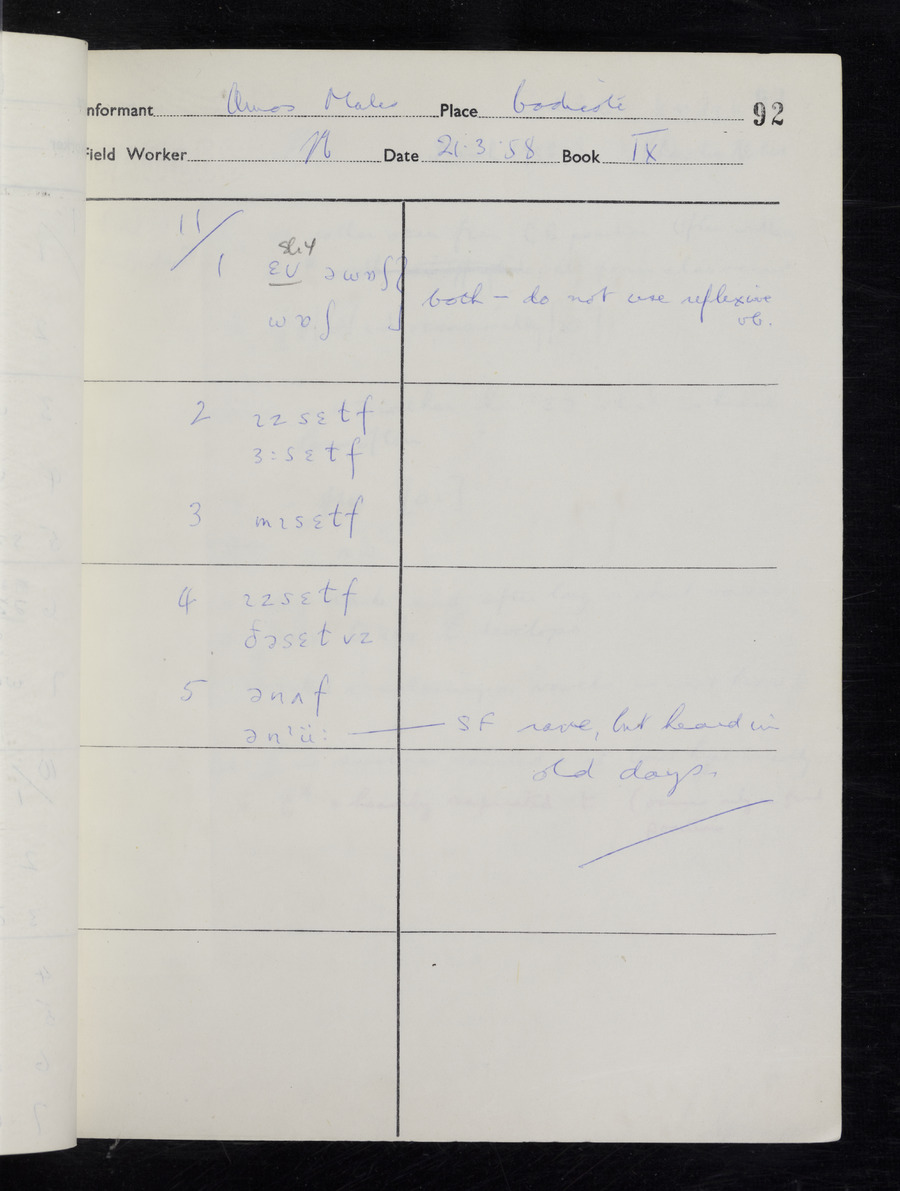 Informant Amos Males Place Bodicote 92
Field Worker Date 21.3.58 Book IX
11/
1 ɛv əwɒʃ
wɒʃ
both – do not use reflexive
vb.
2 ɪzsɛtf
ɜ:sɛtf
3 mɪsɛtf
4 ɪzsɛtf
ðəsɛtvz
5 ənʌf
ənˈü: — SF rare, but heard in
old days.